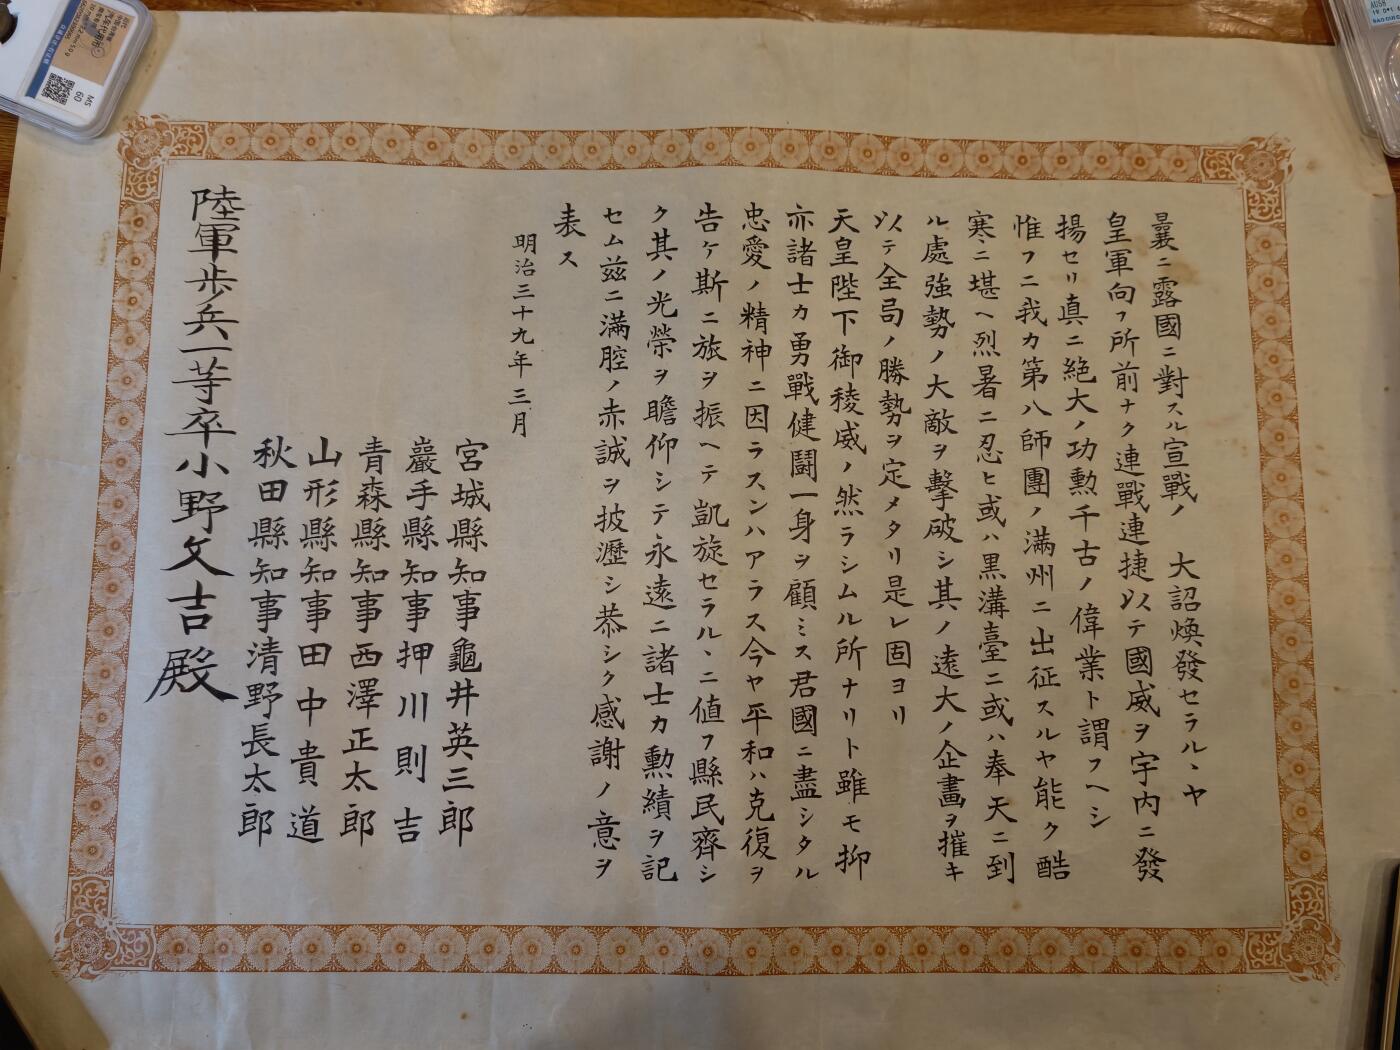 曩ニ露國ニ對スル宣戰ノ　大詔煥發セラルヽヤ
皇軍向フ所前ナク連戰連捷以テ國威ヲ宇内ニ發
揚セリ真ニ絶大ノ功勲千古ノ偉業ト謂フヘシ
惟フニ我カ第八師團ノ満州ニ出征スルヤ能ク酷
寒ニ堪ヘ烈暑ニ忍ヒ或ハ黒溝臺ニ或ハ奉天ニ到
ル處強勢ノ大敵ヲ擊破シ其ノ遠大ノ企畫ヲ摧キ
以テ全局ノ勝勢ヲ定メタリ是レ固ヨリ
天皇陛下御稜威ノ然ラシムル所ナリト雖モ抑
亦諸士カ勇戰健闘一身ヲ顧ミス君國ニ盡シタル
忠愛ノ精神ニ因ラスンハアラス今ヤ平和ハ克復ヲ
告ケ斯ニ旅ヲ振ヘテ凱旋セラルヽニ値フ縣民齊シ
ク其ノ光榮ヲ瞻仰シテ永遠ニ諸士カ勲績ヲ記
セム茲ニ満腔ノ赤誠ヲ披瀝シ恭シク感謝ノ意ヲ
表ス
明治三十九年三月
宮城縣知事龜井英三郎
巖手縣知事押川則吉
青森縣知事西澤正太郎
山形縣知事田中貴道
秋田縣知事清野長太郎
陸軍歩兵一等卒小野文吉殿
MS
60
AU58